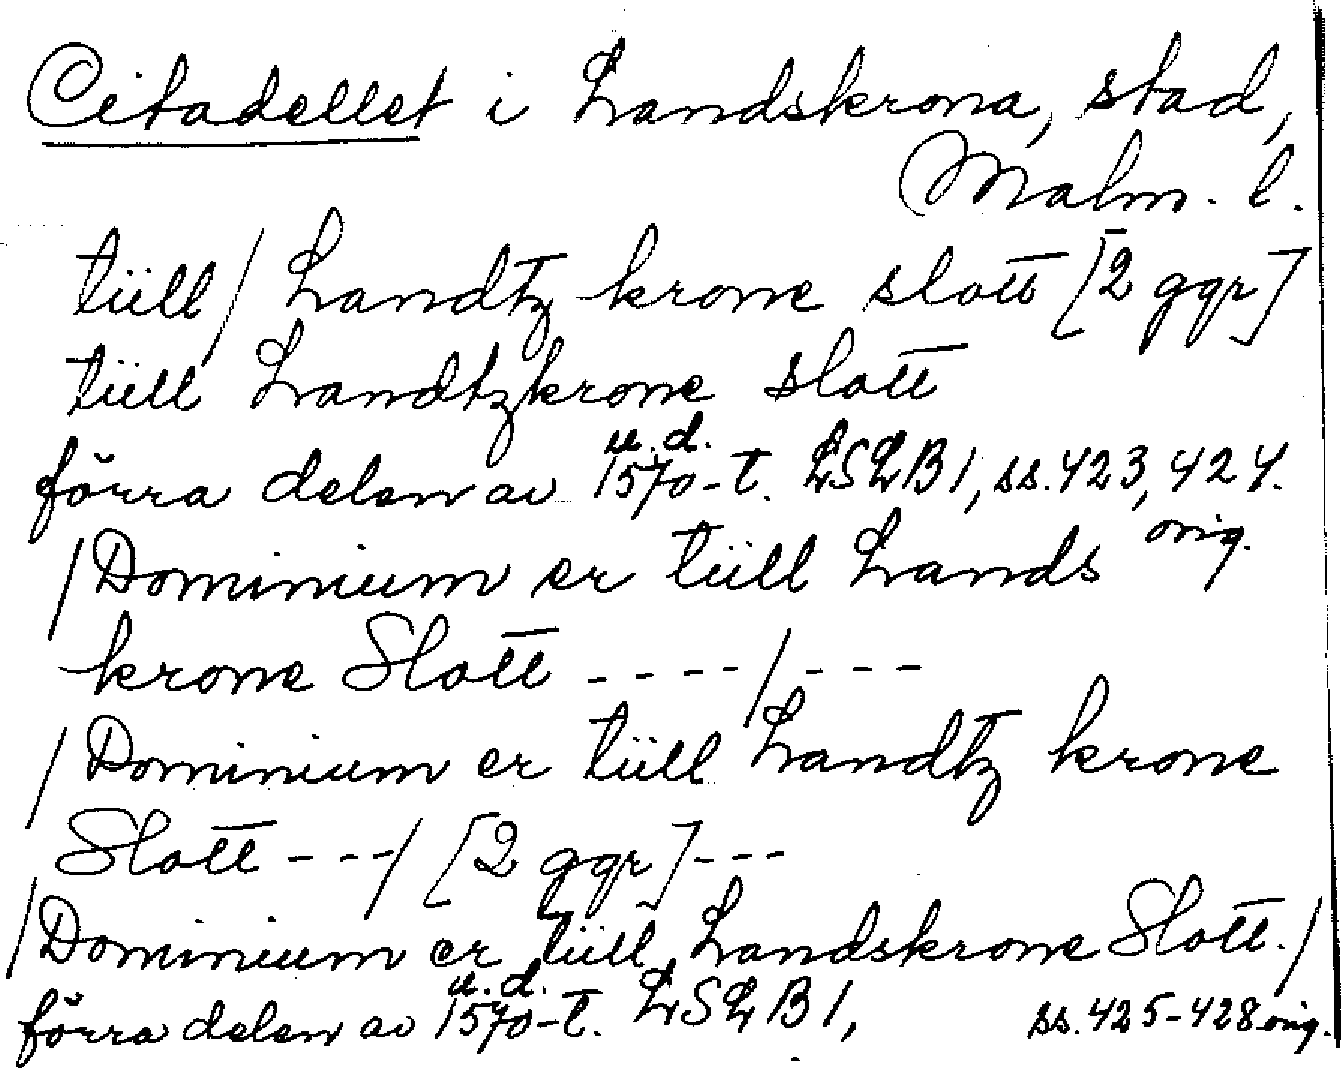 Citadellet i Landskrona, stad,
Malm. l.
tüll / Landtz krone slott [2 ggr]
tüll Landtzkrone slott
förra delen av 1570-t. u.d. LSLB1, ss. 423, 424. orig.
/ Dominium er tüll Lands
krone Slott ---- / ---
/ Dominium er tüll Landtz krone
Slott --- / [2 ggr] ---
/ Dominium er tüll Landskrone Slott. /
förra delen av 1570-t. u.d. LSLB1, ss. 425-428 orig.